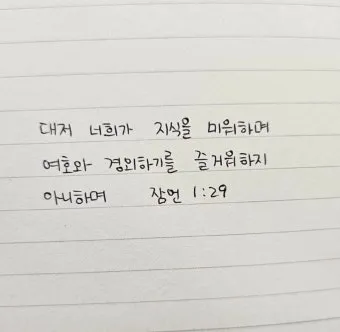 대저 너희가 지식을 미워하며
여호와 경외하기를 즐거워하지
아니하며 잠언 1:29